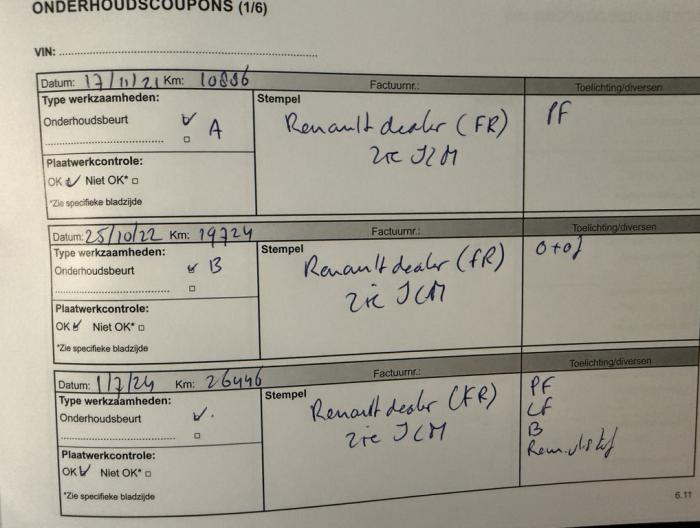 ONDERHOUDSCOUPONS (1/6)
VIN:
Datum: 17/11/21 Km: 10886
Factuurnr.:
Toelichting/diversen
Type werkzaamheden:
Stempel
PF
Onderhoudsbeurt A
Renault dealer (FR)
zie ICM
Plaatwerkcontrole:
OK Niet OK*
*Zie specifieke bladzijde
Datum: 25/10/22 Km: 19724
Factuurnr.:
Toelichting/diversen
Type werkzaamheden:
Stempel
Onderhoudsbeurt B
Renault dealer (FR)
zie ICM
Plaatwerkcontrole:
OK Niet OK*
*Zie specifieke bladzijde
Datum: 1/7/24 Km: 26446
Factuurnr.:
Toelichting/diversen
Type werkzaamheden:
Stempel
PF
Onderhoudsbeurt
Renault dealer (FR)
LF
zie ICM
B
Plaatwerkcontrole:
OK Niet OK*
*Zie specifieke bladzijde
6.11